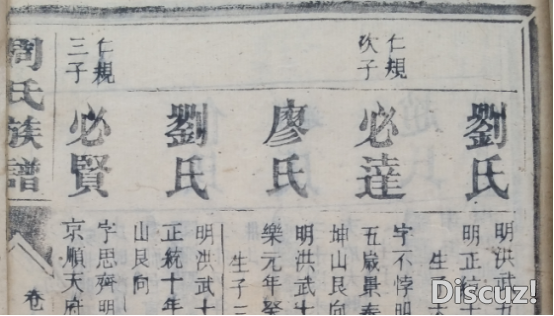 劉氏
明洪武
明正統十
生子
仁規
次子
必達
字不悖明
五歲景泰
坤山艮向
廖氏
明洪武十
樂元年娶
生子
劉氏
明洪武十
正統十年
山艮向
仁規
三子
必賢
字思齊明
京順天府
周氏族譜
卷
Discuz!